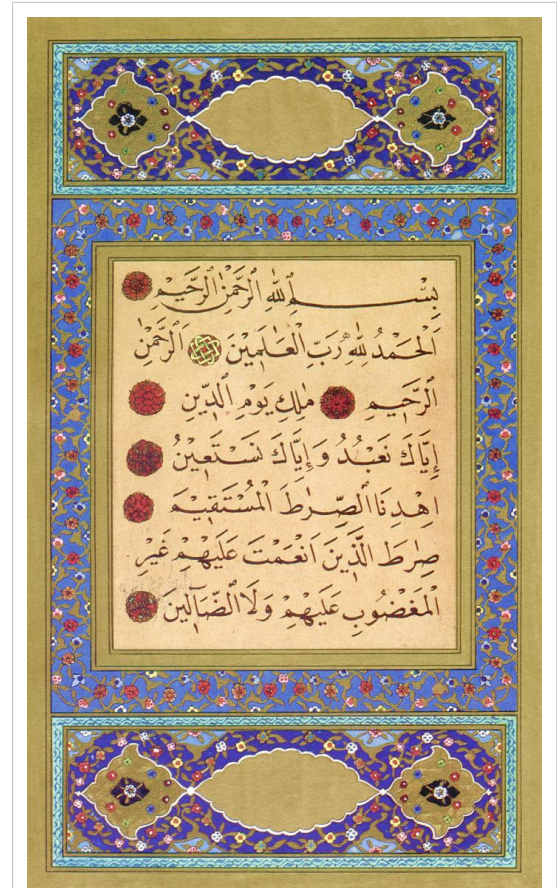 بِسْمِ ٱللّٰهِ ٱلرَّحْمٰنِ ٱلرَّحِيمِ
اَلْحَمْدُ لِلّٰهِ رَبِّ ٱلْعَالَمِينَ اَلرَّحْمٰنِ
ٱلرَّحِيمِ مٰلِكِ يَوْمِ ٱلدِّينِ
إِيَّاكَ نَعْبُدُ وَإِيَّاكَ نَسْتَعِينُ
اهْدِنَا ٱلصِّرٰطَ ٱلْمُسْتَقِيمَ
صِرٰطَ ٱلَّذِينَ اَنْعَمْتَ عَلَيْهِمْ غَيْرِ
ٱلْمَغْضُوبِ عَلَيْهِمْ وَلَا ٱلضَّآلِّينَ